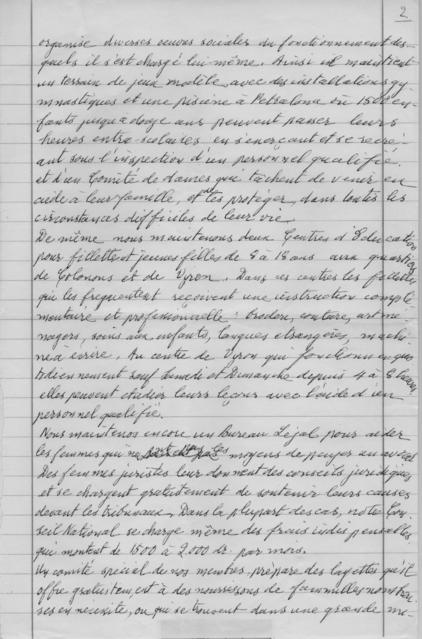 2
organise diverses oeuvres sociales du fonctionnement des-
quels il s'est chargé lui même. Ainsi il maintient
un terrain de jeux modèle, avec des installations gy-
mnastiques et une piscine à Petralona où 1500 en-
fants jusqu'à douze ans peuvent passer leurs
heures entre-scolaires en s'exerçant et se recré-
ant sous l'inspection d'un personnel qualifié
et d'un Comité de dames qui tâchent de venir en
aide à leur famille, et les protéger, dans toutes les
circonstances difficiles de leur vie.
De même nous maintenons deux Centres d'Education
pour fillettes et jeunes filles de 8 à 18 ans aux quartiers
de Colonos et de Vyron. Dans ces centres les fillettes
qui les fréquentent reçoivent une instruction complé-
mentaire et professionnelle: broderie, couture, art mé-
nagers, soins aux enfants, langues étrangères, machi-
ne à écrire. Au centre de Vyron qui fonctionne quo-
tidiennement sauf Samedi et Dimanche depuis 4 à 8 heures
elles peuvent étudier leurs leçons avec l'aide d'un
personnel qualifié.
Nous maintenons encore un Bureau Légal pour aider
les femmes qui n'ont pas les moyens de payer un avocat
Des femmes juristes leur donnent des conseils juridiques
et se chargent gratuitement de soutenir leurs causes
devant les tribunaux. Dans la plupart des cas, notre Con-
seil National se charge même des frais indispensables
qui montent de 1500 à 2.000 dr par mois.
Un comité spécial de nos membres, prépare des layettes qu'il
offre gratuitement à des nourissons de familles
ses en necessité, ou qui se trouvent dans une grande mi-